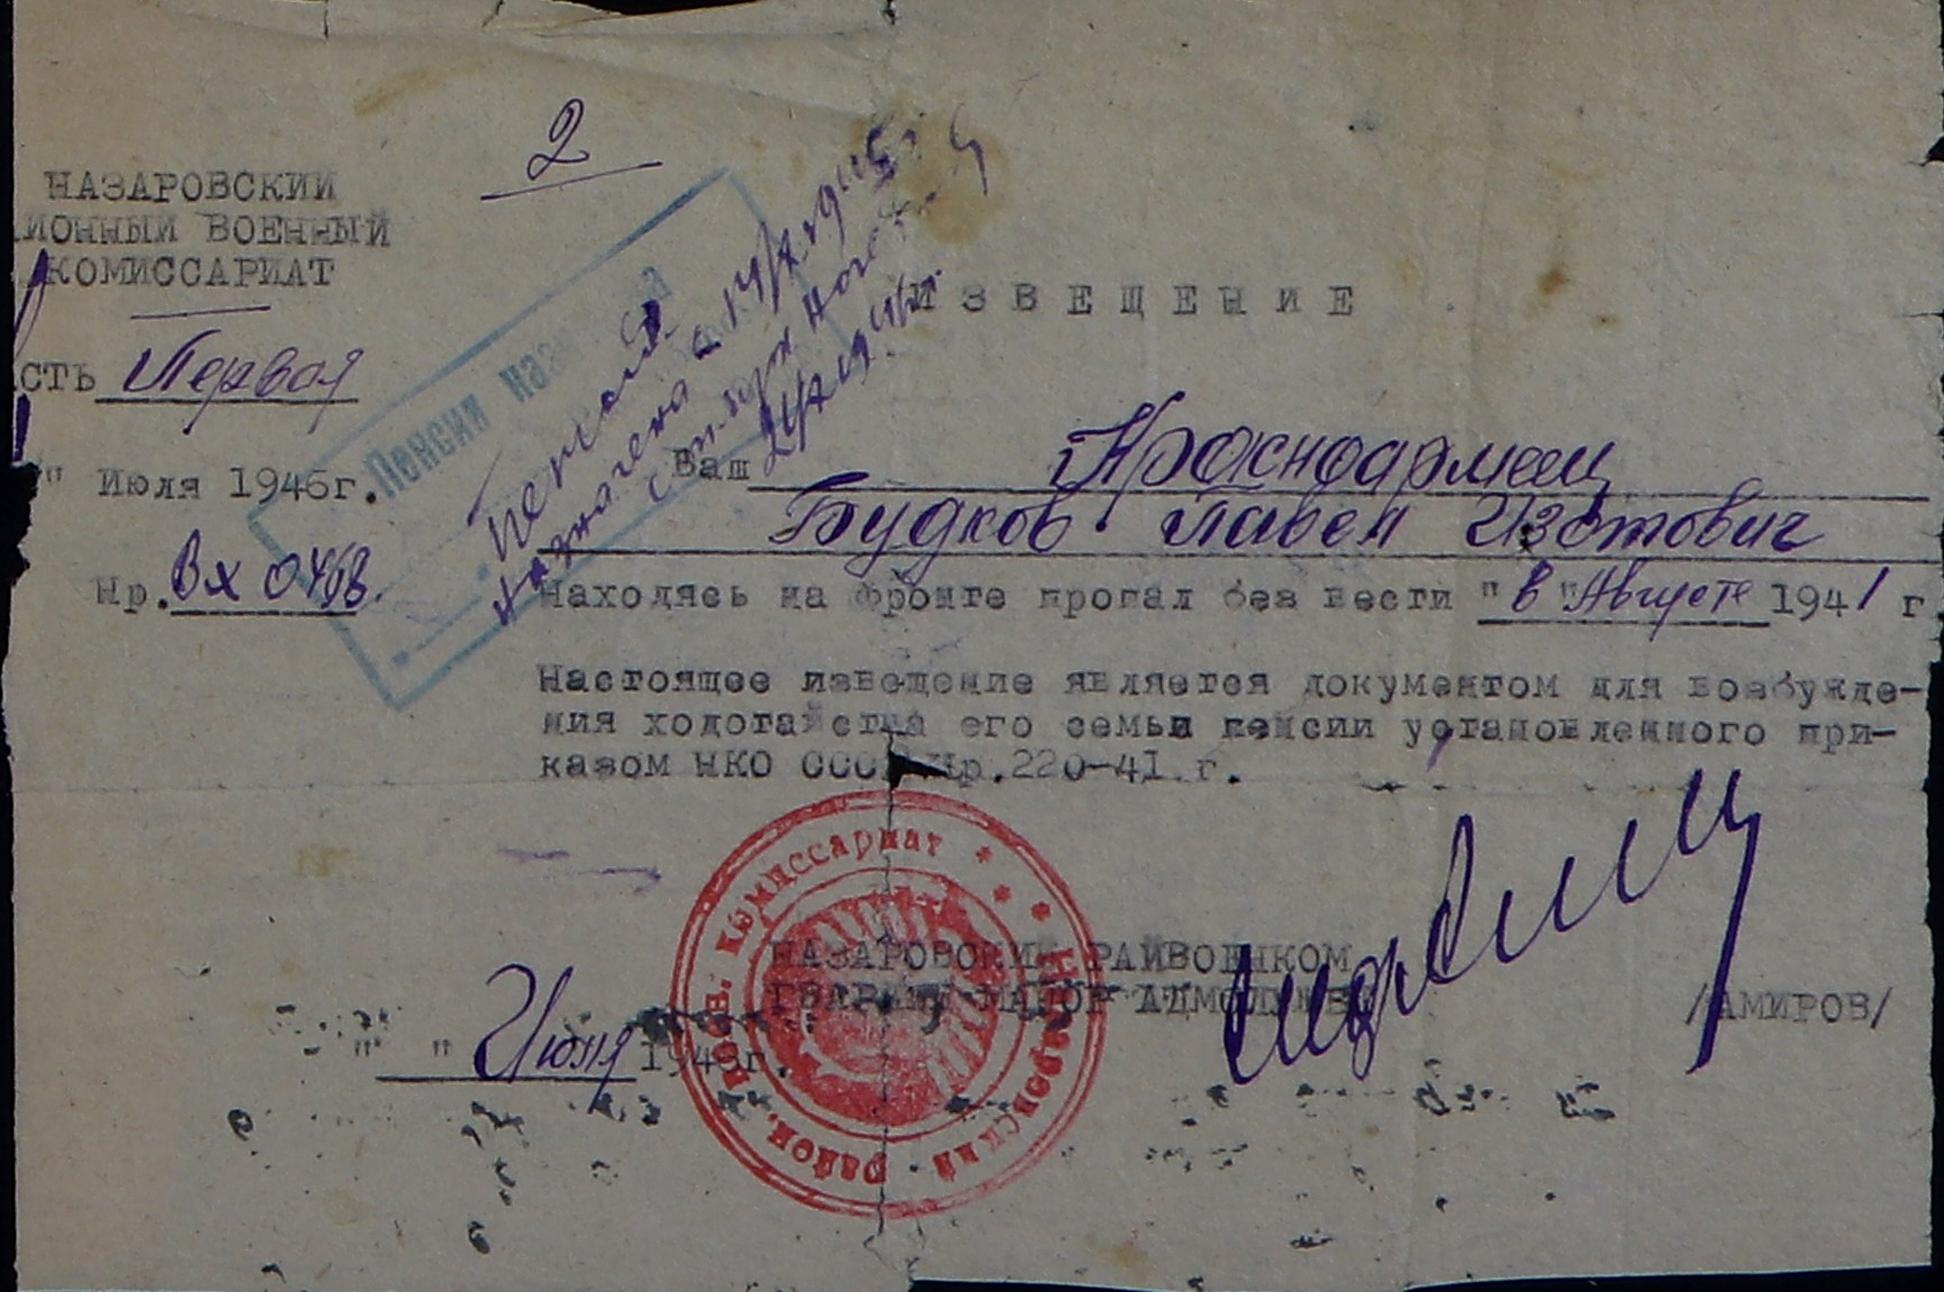 2
НАЗАРОВСКИЙ
ИОННЫЙ ВОЕННЫЙ
КОМИССАРИАТ
сть Первая
" Июля 1946г.
Нр. Вх 0468
Пенсия
Пенсия
назначена с
ИЗВЕЩЕНИЕ
Ваш Красноармеец
Будков Павел Изотович
Находясь на фронте пропал без вести "в" Августе 1941 г
Настоящее извещение является документом для возбужде-
ния ходотайства его семьи пенсии установленного при-
казом НКО СССР Нр.220-41 г.
НАЗАРОВСКИЙ РАЙВОЕНКОМ
ГВАРДИИ МАЙОР АДМСЛУЖБЫ
/АМИРОВ/
" " Июля 1946г.
Назаровский район. воен. комиссариат